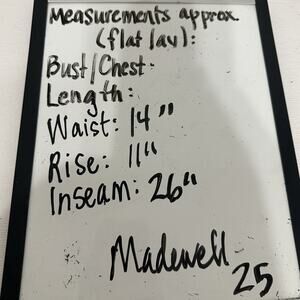 Measurements approx
(flat lay):
Bust/Chest:
Length:
Waist: 14"
Rise: 11"
Inseam: 26"
Madewell
25